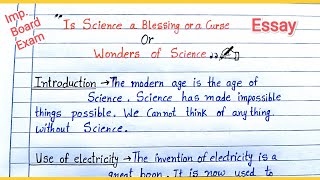 Imp.
Board
Exam
"Is Science a Blessing or a Curse
Essay
Or
Wonders of Science
Introduction → The modern age is the age of
Science. Science has made impossible
things possible. We Cannot think of anything
without Science.
Use of electricity → The invention of electricity is a
great boon. It is now used to